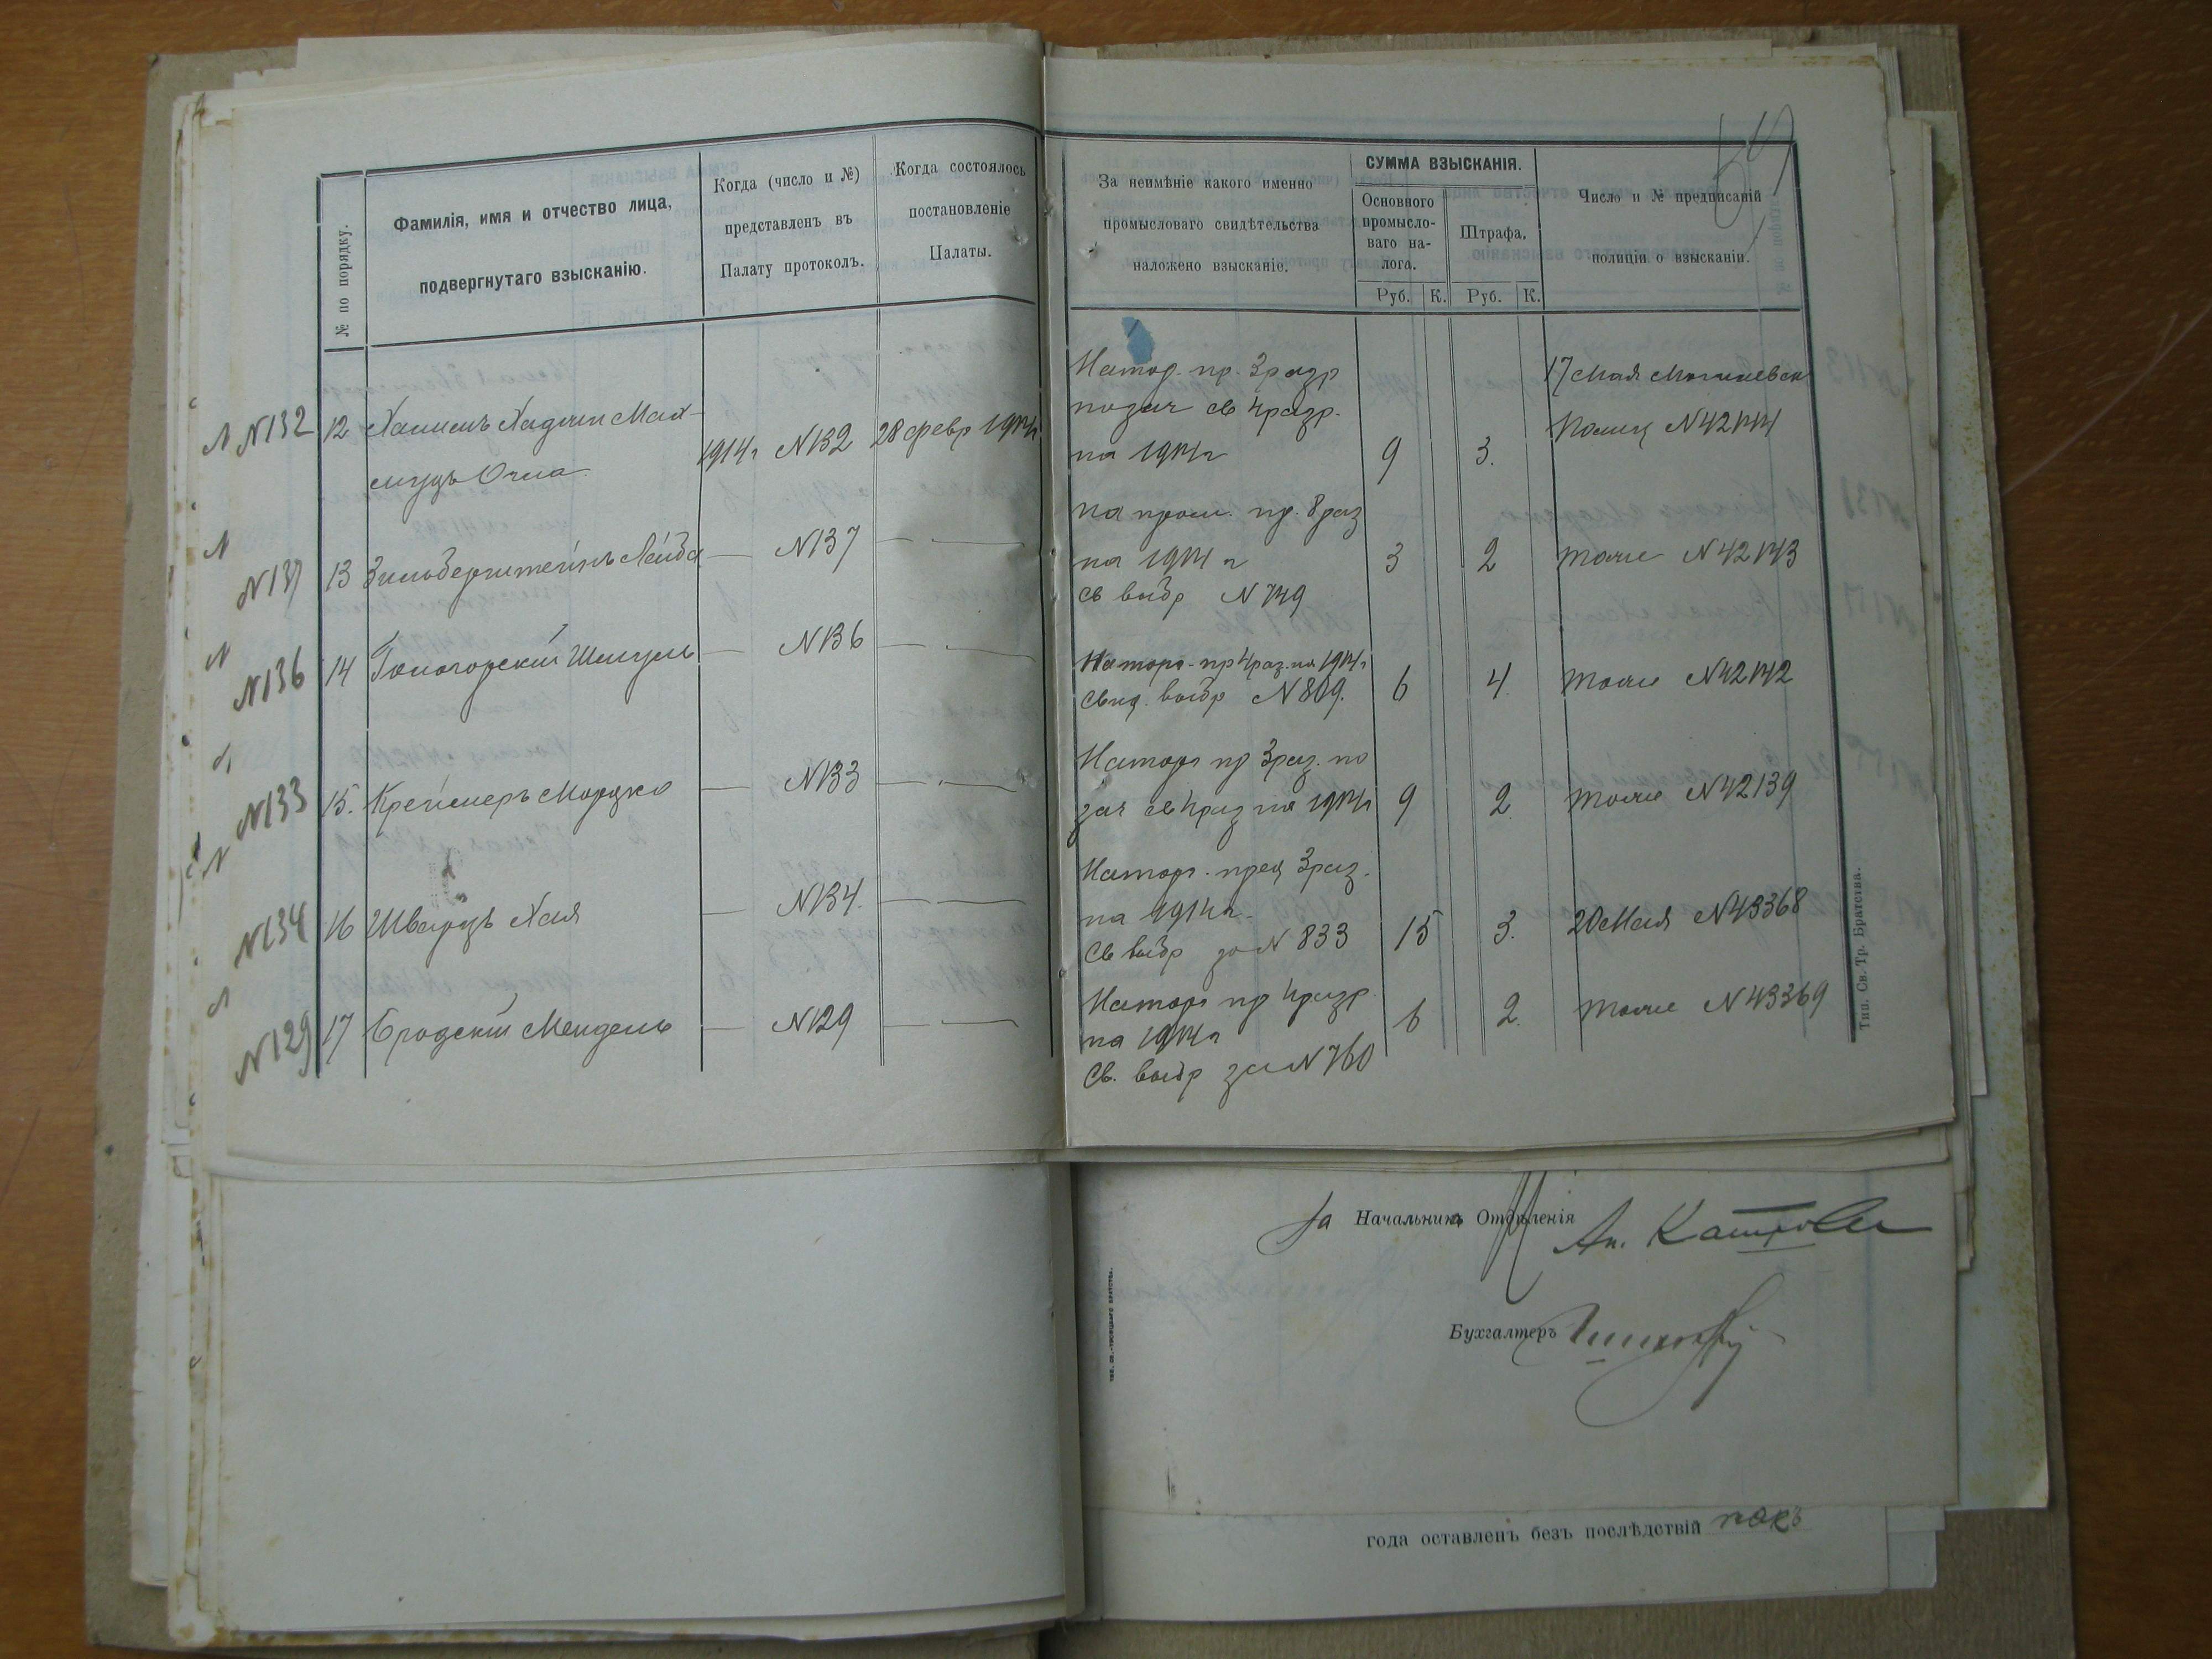 59
№ по порядку.
Фамилія, имя и отчество лица,
подвергнутаго взысканію.
Когда (число и №)
представленъ въ
Палату протоколъ.
Когда состоялось
постановленіе
Палаты.
За неимѣніе какого именно
промысловаго свидѣтельства
наложено взысканіе.
СУММА ВЗЫСКАНІЯ.
Основного
промысло-
ваго на-
лога.
Штрафа.
Руб. К. Руб. К.
Число и № предписаній
полиціи о взысканіи.
N132 12 Халилъ Хаджи Мах-
мудъ Огла
1914г N132 28 февр 1914г
На торг. пр. 3 разр
позач св 4 разр.
на 1914г 9 3.
17 Мая Могилевск
Полиц N42144
N137 13 Зильберштейнъ Лейба — N137 — —
на пром. пр. 8 раз
на 1914 г 3 2 тоже N42143
св выбр N749
N136 14 Гологорскій Шмуль — N136 — —
На торг. пр 4 раз. на 1914г
Свид. выбр N809. 6 4. тоже N42142
N133 15. Креймеръ Мордко — N133 — —
На торг пр 3 раз. по
зач св 4 раз на 1914г 9 2. тоже N42139
N134 16 Шварцъ Хая — N134. — —
На торг. пред 3 раз.
на 1914г.
Св выбр за N 833 15 3. 20 Мая N43368
N129 17 Бродскій Мендель — N129 — —
На торг пр 4 разр.
на 1914г 6 2. тоже N43369
Св. выбр за N760
Тип. Св. Тр. Братства.
За Начальника Отдѣленія
Бухгалтеръ
года оставленъ безъ послѣдствій такъ